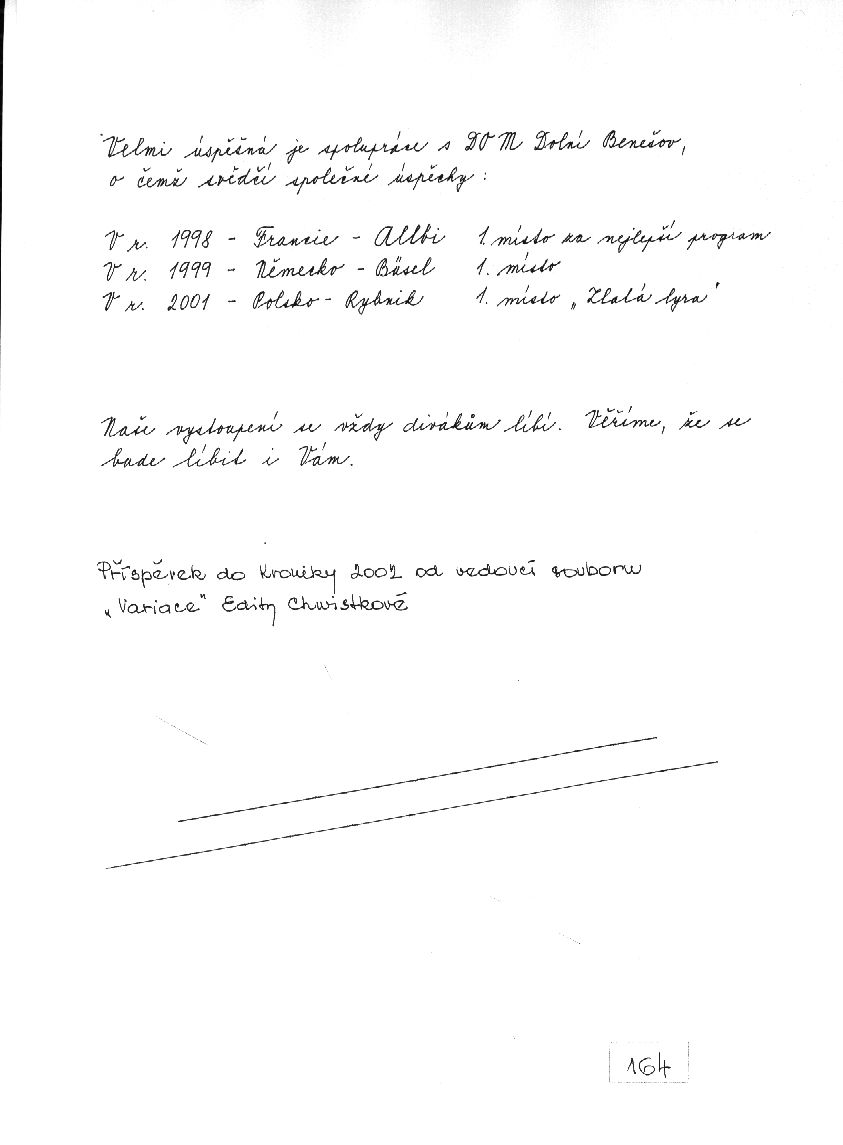 Velmi úspěšná je spolupráce s DOM Dolní Benešov,
o čemž svědčí společné úspěchy :
V r. 1998 - Francie - Allbi 1. místo za nejlepší program
V r. 1999 - Německo - Bäsel 1. místo
V r. 2001 - Polsko - Rybnik 1. místo „Zlatá lyra"
Naše vystoupení se vždy divákům líbí. Věříme, že se
bude líbit i Vám.
Příspěvek do kroniky 2002 od vedoucí souboru
„Variace" Edity Chwistkové
164